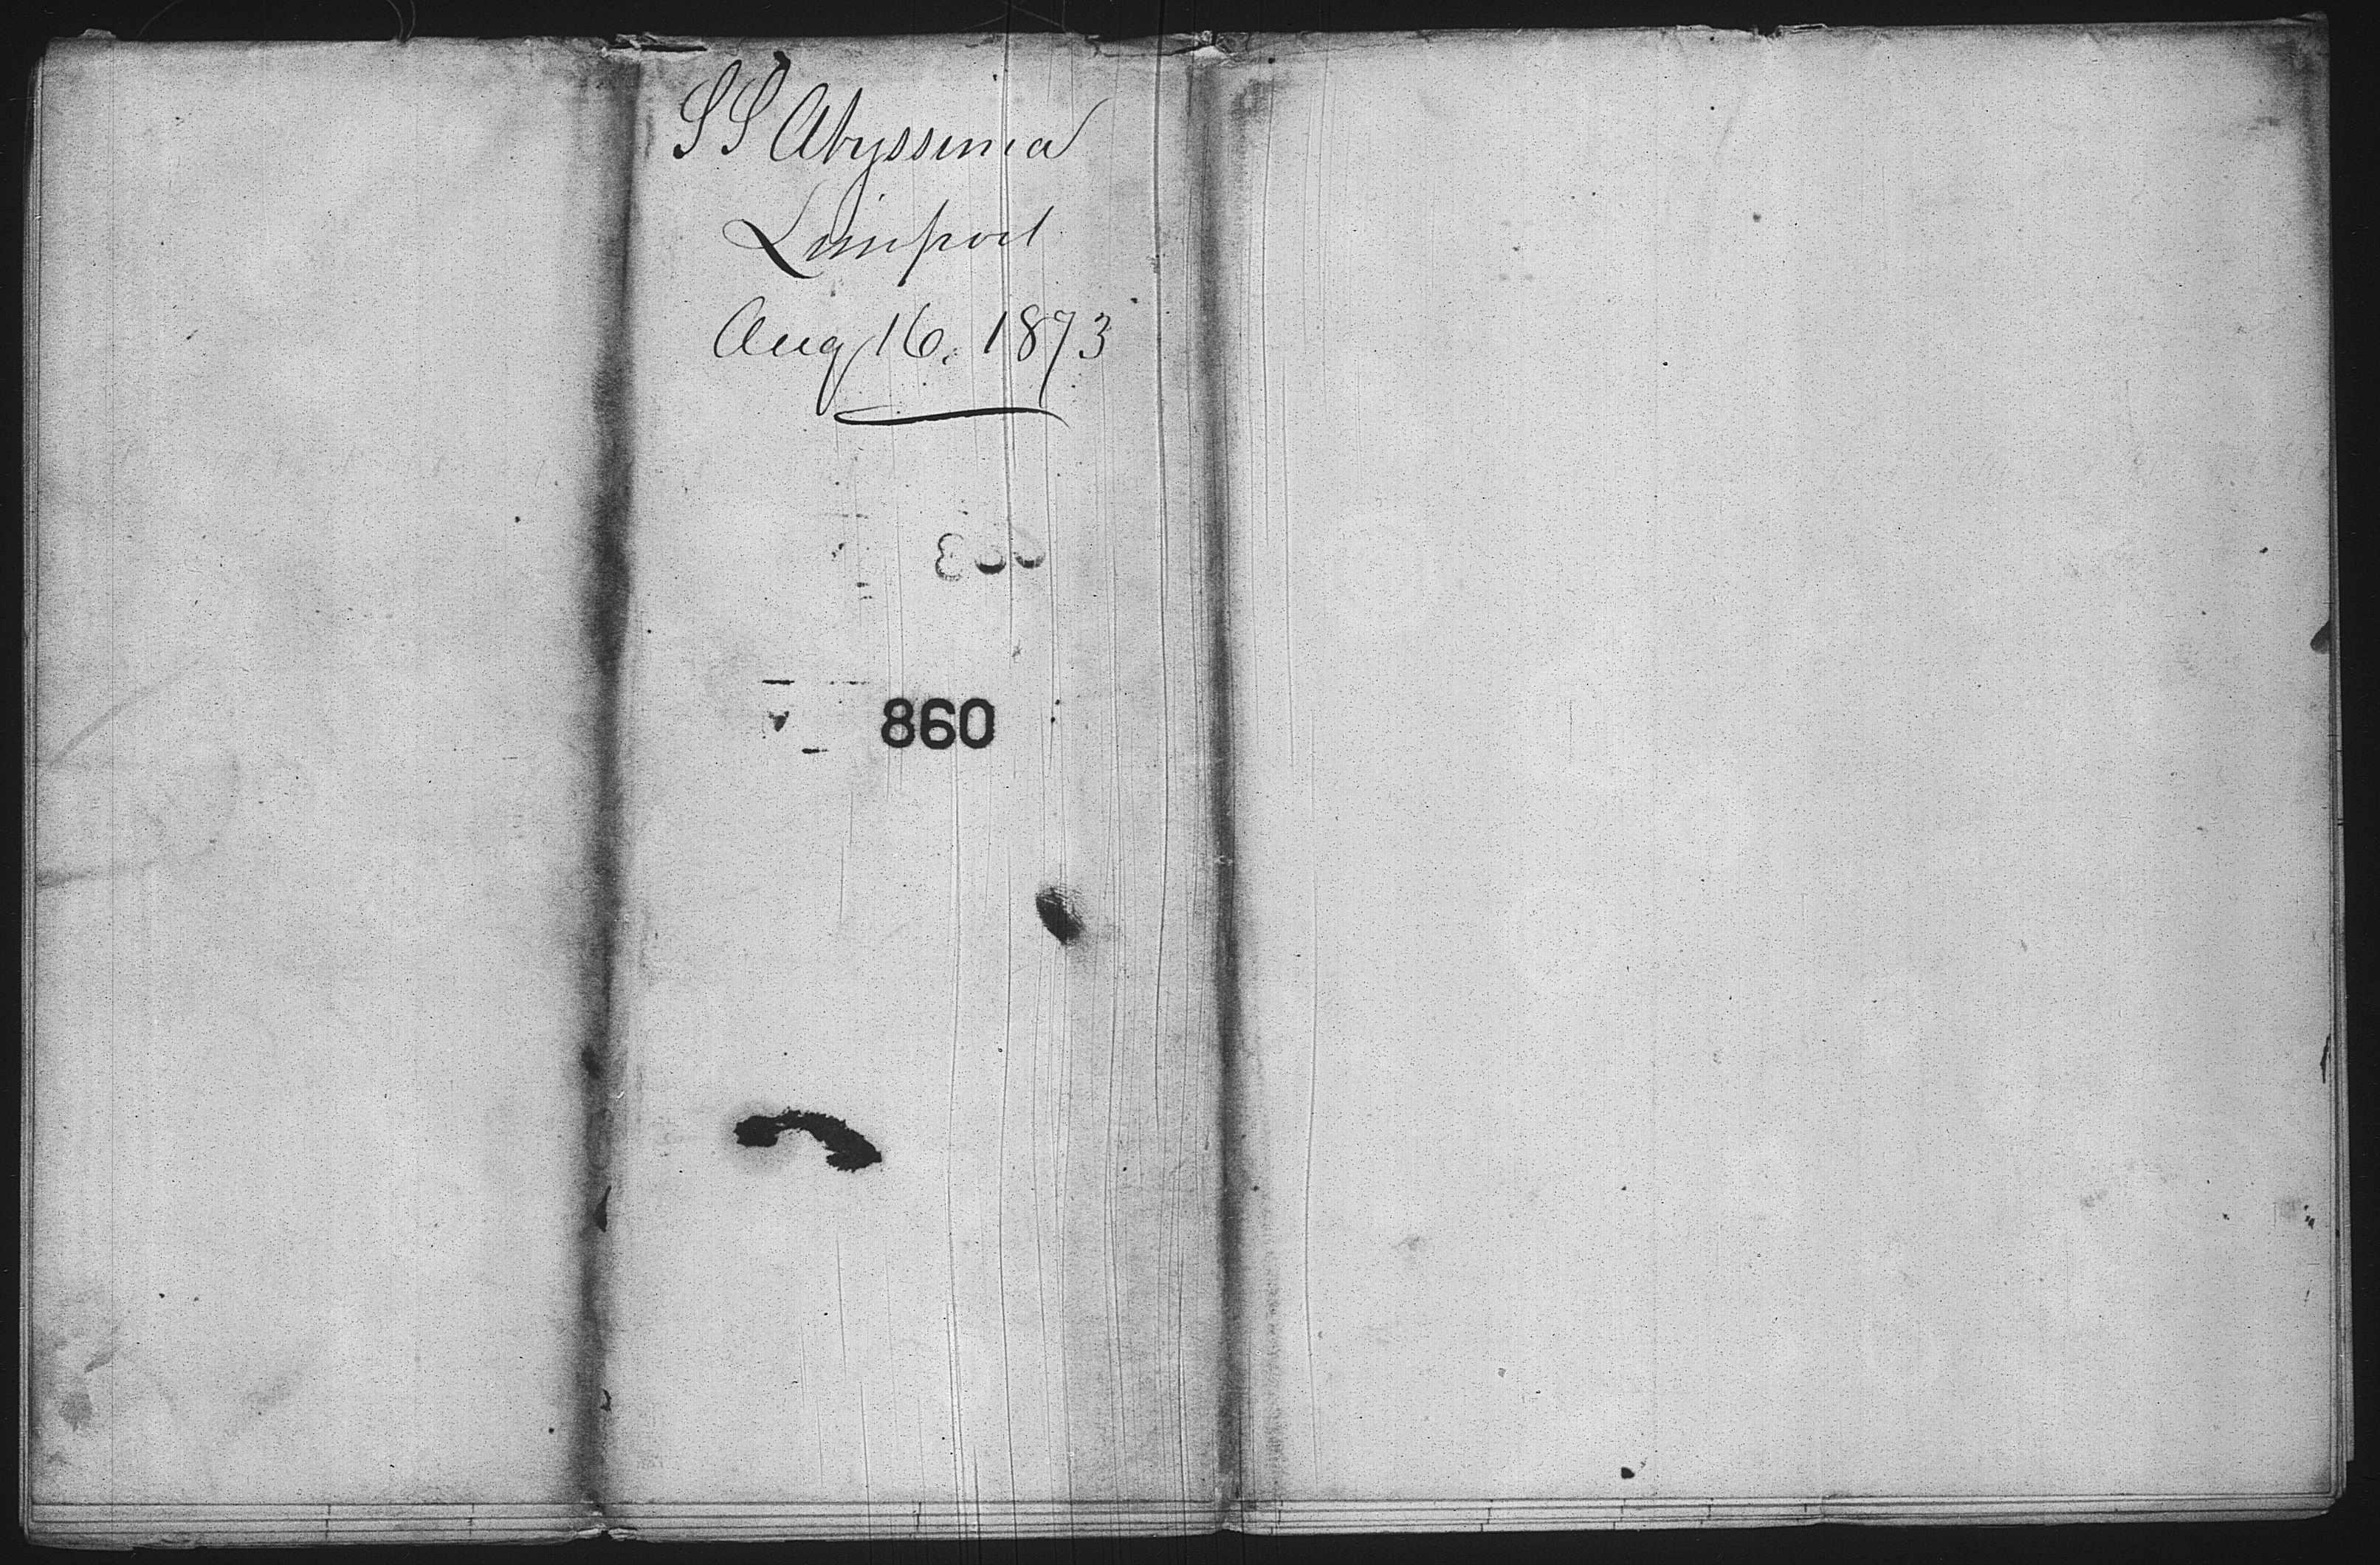 SS Abyssinia
Liverpool
Aug 16. 1873
860